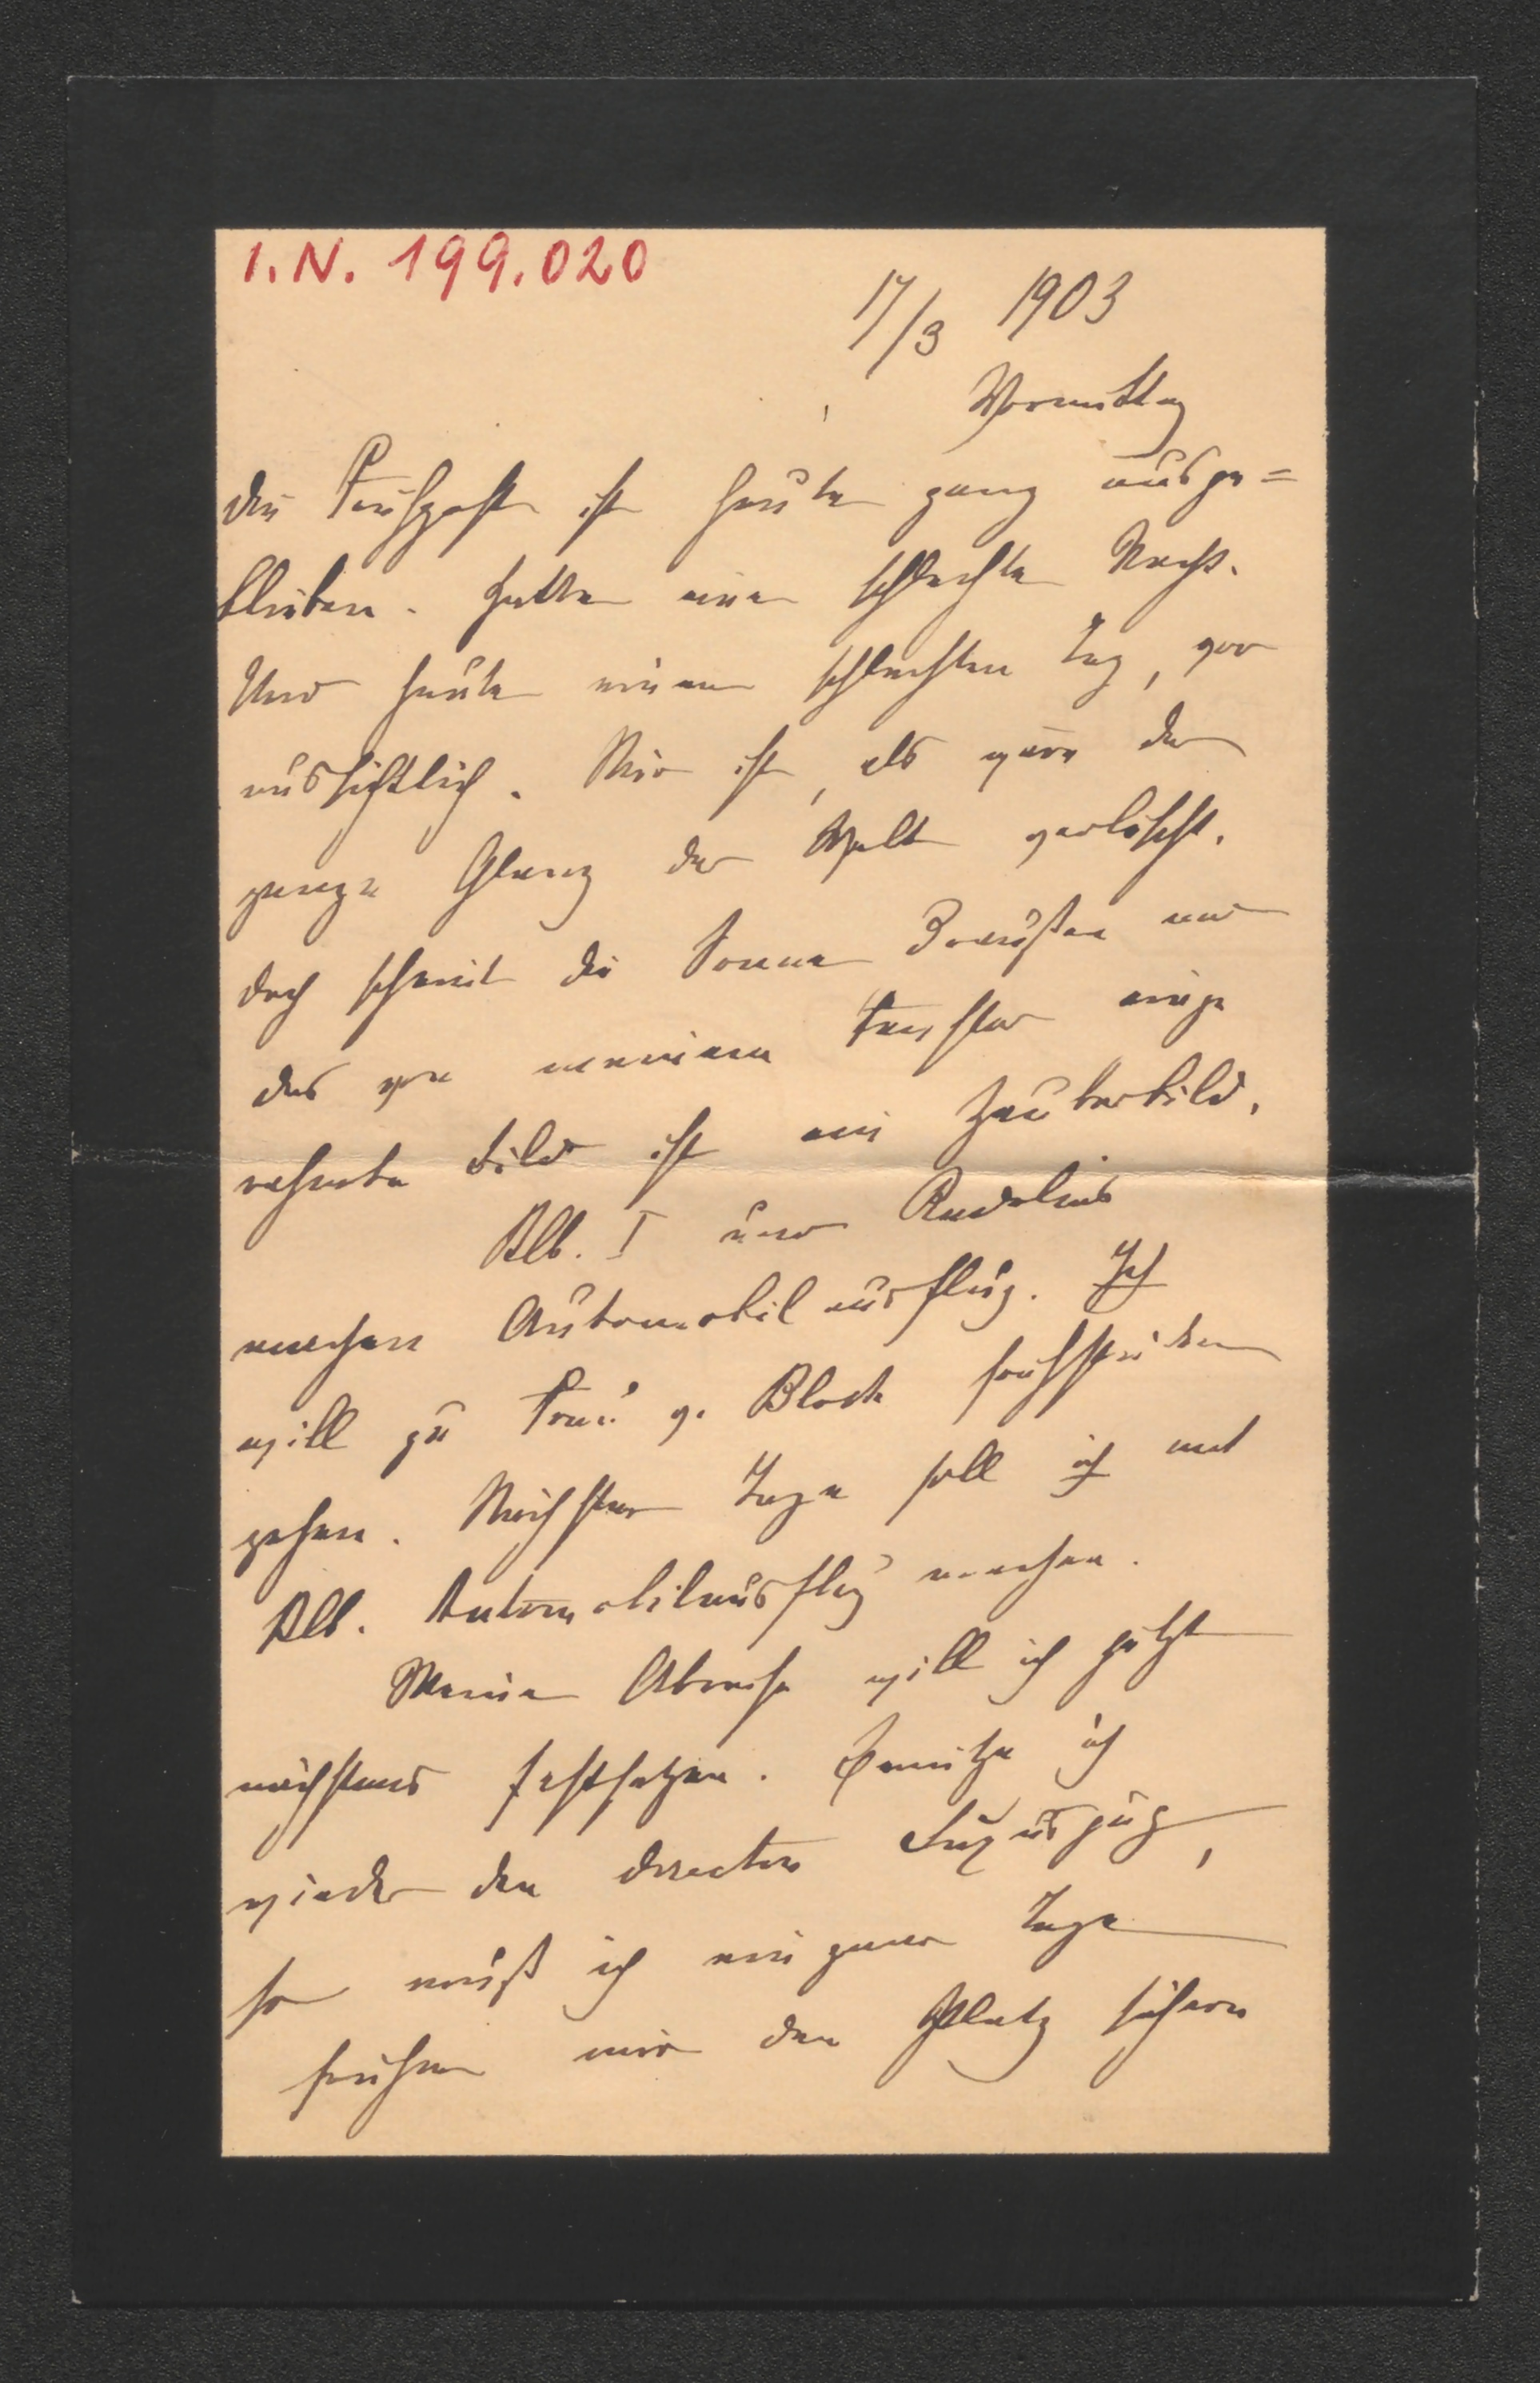 I.N. 199.020
17/3 1903
Vormittag
Die Frühpost ist heute ganz ausge=
blieben. Hatte eine schlechte Nacht.
Und heute einen schlechten Tag, vor
aussichtlich. Mir ist, als wäre der
ganze Glanz der Welt verlöscht.
doch scheint die Sonne draußen und
das von meinem Fenster einge
rahmte Bild ist ein Zauberbild.
Alb. I und
machen Automobilausflug. Ich
will zu Frau v. Bloch frühstücken
gehen. Nächster Tage soll ich mit
Alb. Automobilausflug machen.
Meine Abreise will ich jetzt
nächstens festsetzen. Benütze ich
wieder den directen Luxuszug,
so muß ich einige Tage
früher mir den Platz sichern